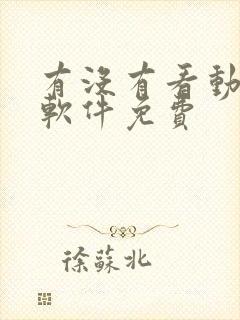 有沒有看動
軟件免費
徐蘇北